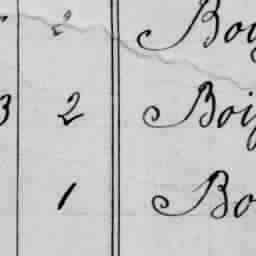 2 Boi
3 2 Boi
1 Bo